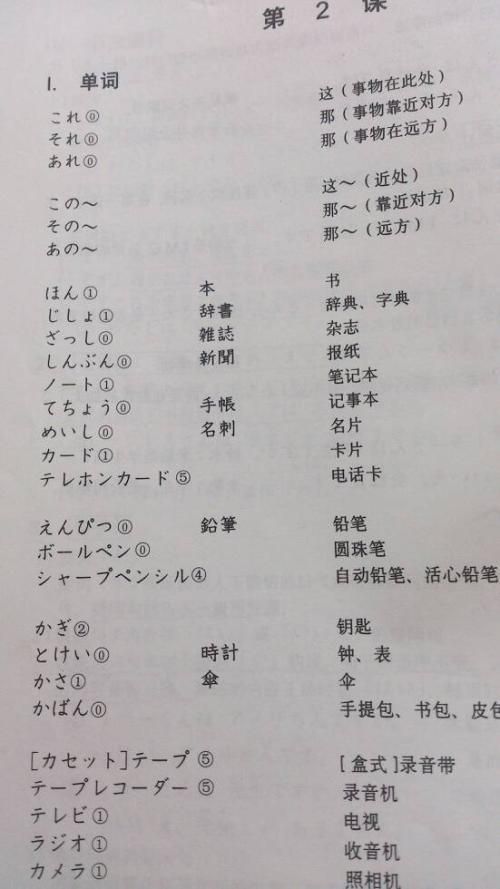 第 2 课
I. 单词
これ⓪ 这（事物在此处）
それ⓪ 那（事物靠近对方）
あれ⓪ 那（事物在远方）
この～ 这～（近处）
その～ 那～（靠近对方）
あの～ 那～（远方）
ほん① 本 书
じしょ① 辞書 辞典、字典
ざっし⓪ 雑誌 杂志
しんぶん⓪ 新聞 报纸
ノート① 笔记本
てちょう⓪ 手帳 记事本
めいし⓪ 名刺 名片
カード① 卡片
テレホンカード⑤ 电话卡
えんぴつ⓪ 鉛筆 铅笔
ボールペン⓪ 圆珠笔
シャープペンシル④ 自动铅笔、活心铅笔
かぎ② 钥匙
とけい⓪ 時計 钟、表
かさ① 傘 伞
かばん⓪ 手提包、书包、皮包
[カセット]テープ⑤ [盒式]录音带
テープレコーダー⑤ 录音机
テレビ① 电视
ラジオ① 收音机
カメラ① 照相机